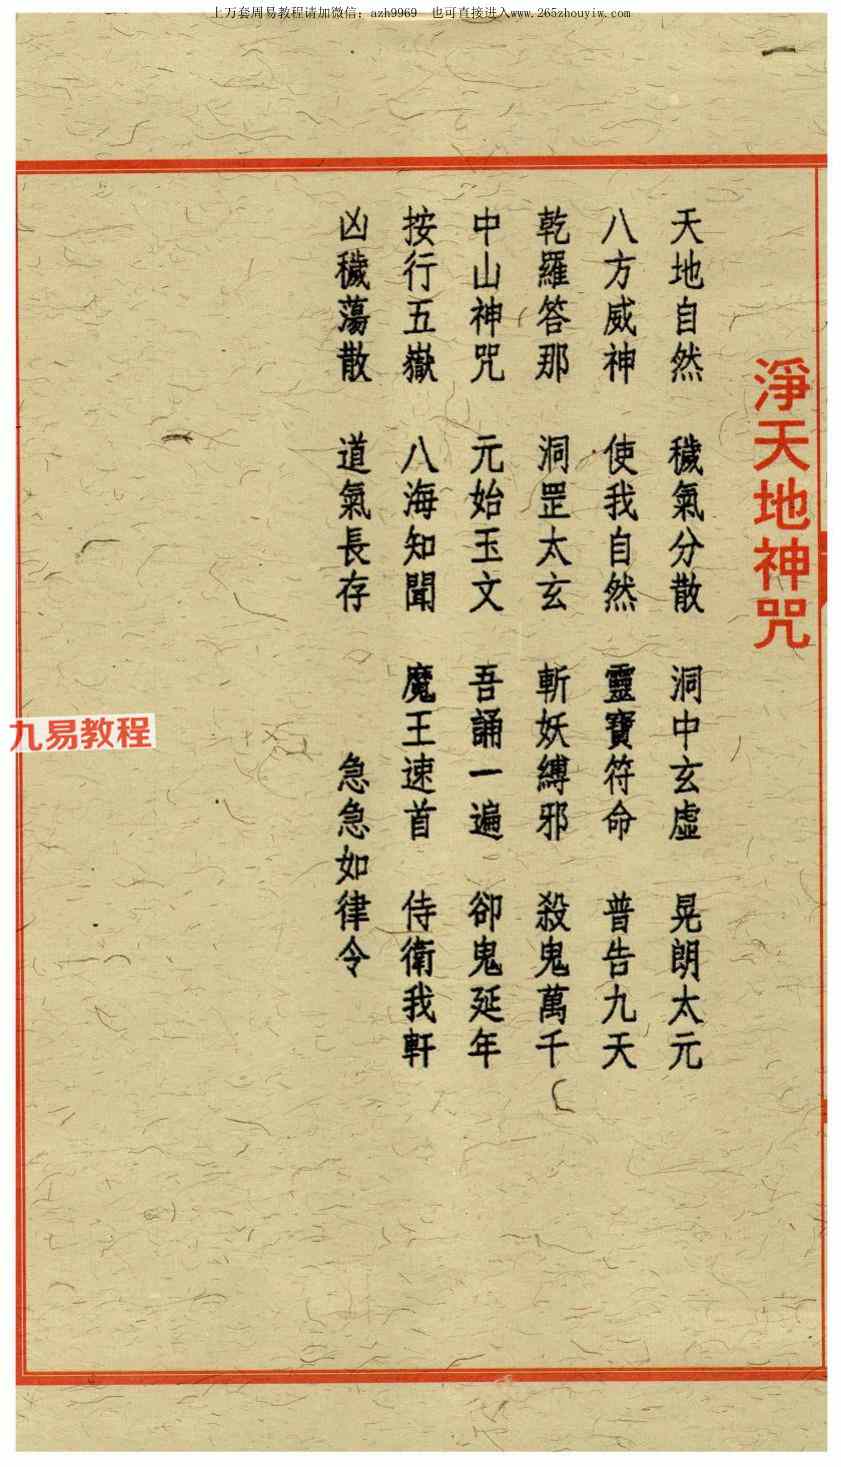 上万套周易教程请加微信：azh9969 也可直接进入www.265zhouyiw.com
淨天地神咒
天地自然 穢氣分散 洞中玄虛 晃朗太元
八方威神 使我自然 靈寶符命 普告九天
乾羅答那 洞罡太玄 斬妖縛邪 殺鬼萬千
中山神咒 元始玉文 吾誦一遍 卻鬼延年
按行五嶽 八海知聞 魔王速首 侍衛我軒
凶穢蕩散 道氣長存 急急如律令
九易教程